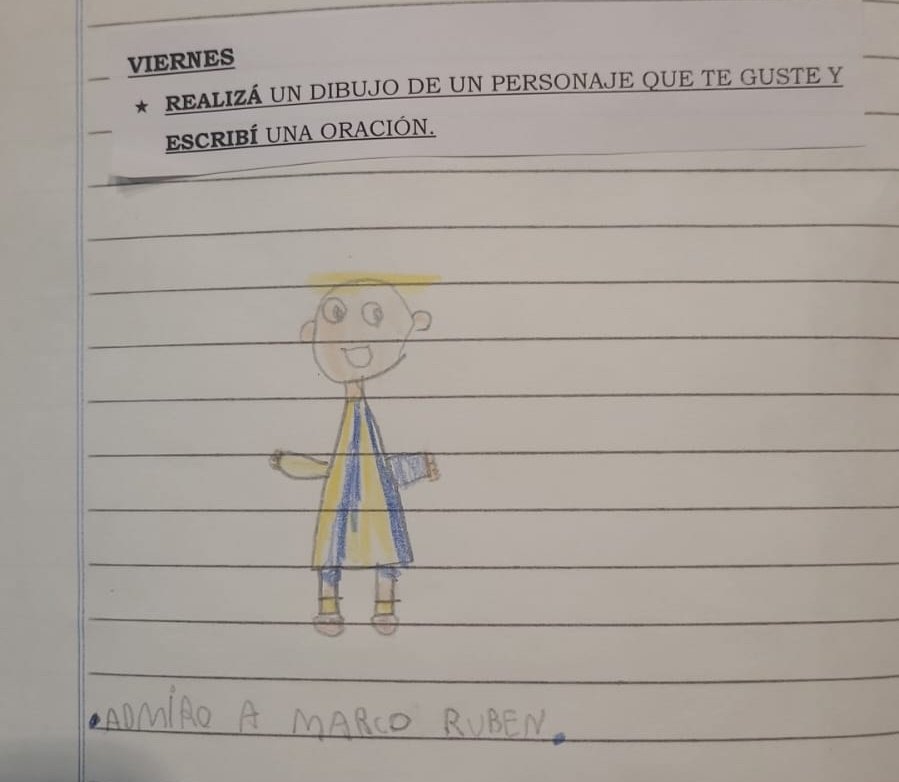 VIERNES
★ REALIZÁ UN DIBUJO DE UN PERSONAJE QUE TE GUSTE Y
ESCRIBÍ UNA ORACIÓN.
.ADMÍRO A MARCO RUBEN.